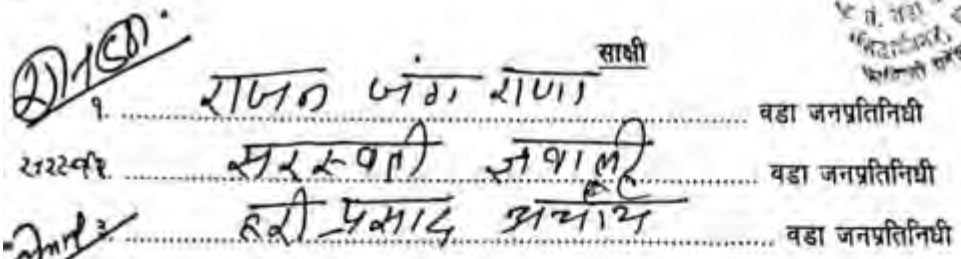 साक्षी
१. राजन जंग राणा वडा जनप्रतिनिधी
सरस्वती ज्ञवाली वडा जनप्रतिनिधी
हरी प्रसाद अर्चाय वडा जनप्रतिनिधी